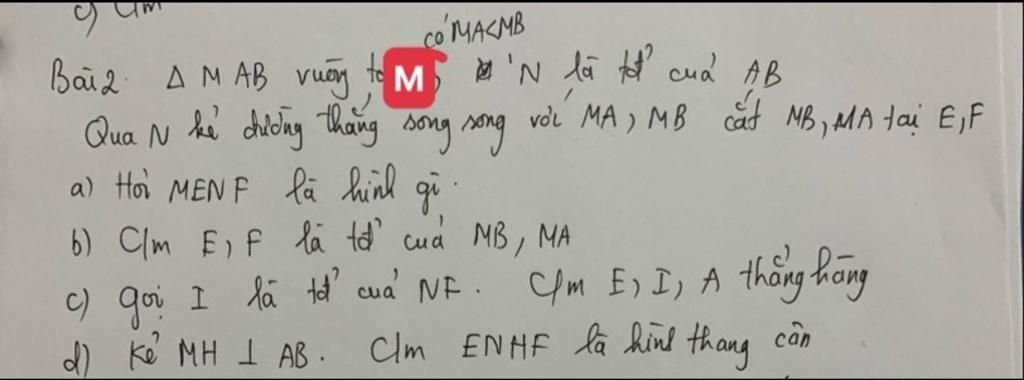 c) C/m
có MA<MB
Bài 2. Δ MAB vuông tạ M, N là tđ' của AB
Qua N kẻ đường thẳng song song với MA, MB cắt MB, MA tại E, F
a) Hỏi MENF là hình gì.
b) C/m E, F là tđ' của MB, MA
c) gọi I là tđ' của NF. C/m E, I, A thẳng hàng
d) Kẻ MH ⊥ AB. C/m ENHF là hình thang cân